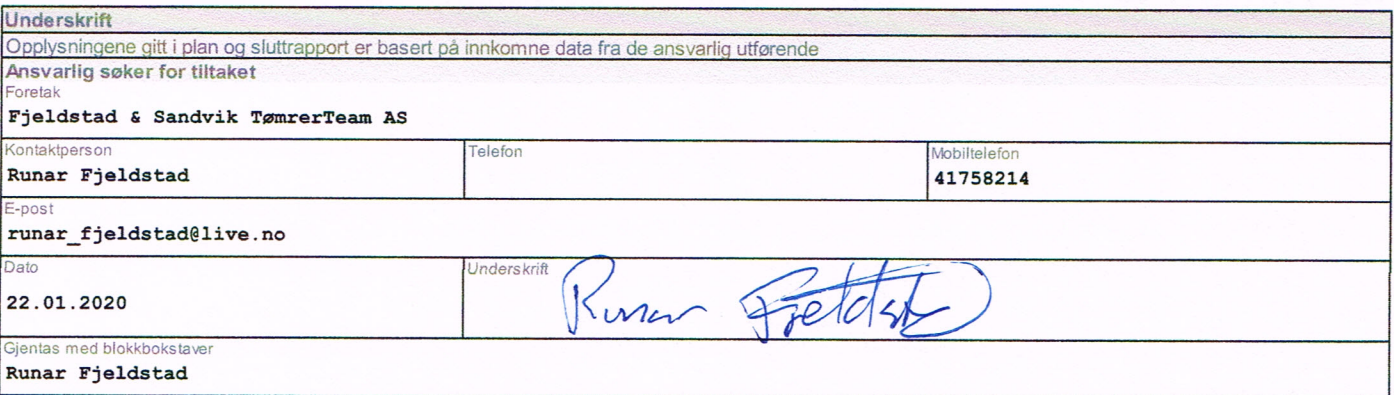 Underskrift
Opplysningene gitt i plan og sluttrapport er basert på innkomne data fra de ansvarlig utførende
Ansvarlig søker for tiltaket
Foretak
Fjeldstad & Sandvik TømrerTeam AS
Kontaktperson
Telefon
Mobiltelefon
Runar Fjeldstad
41758214
E-post
runar_fjeldstad@live.no
Dato
Underskrift
22.01.2020
Runar Fjeldstad
Gjentas med blokkbokstaver
Runar Fjeldstad